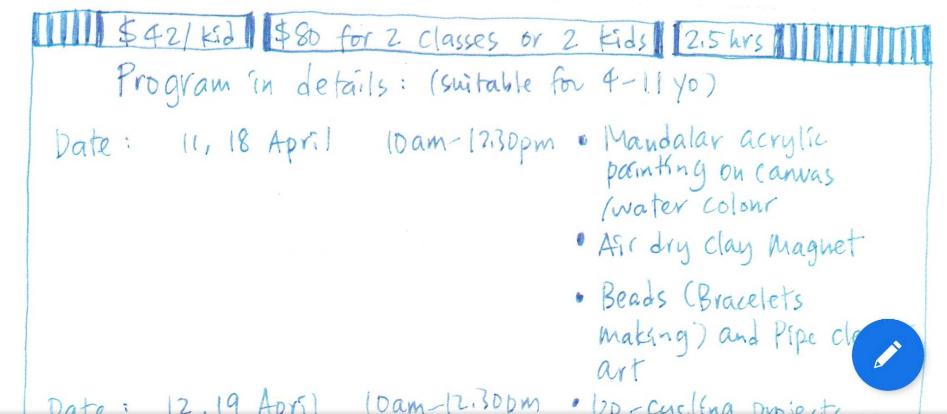 $42/kid $80 for 2 classes or 2 kids 2.5hrs
Program in details: (suitable for 4-11 yo)
Date: 11, 18 April 10am-12.30pm • Mandalar acrylic
painting on canvas
/water colour
• Air dry clay Magnet
• Beads (Bracelets
making) and Pipe
art
Date: 12, 19 April 10am-12.30pm • Up-cycling projects